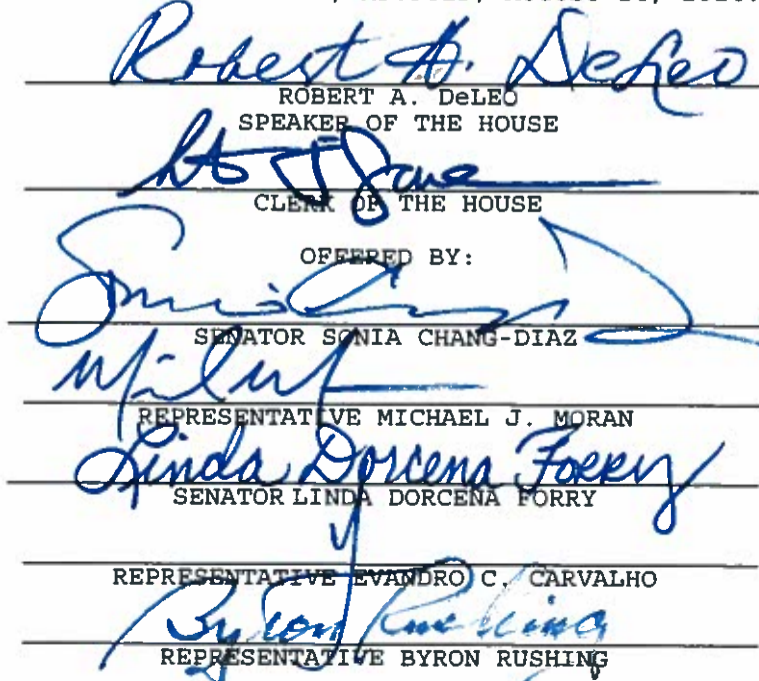 Robert A. DeLeo
ROBERT A. DeLEO
SPEAKER OF THE HOUSE
CLERK OF THE HOUSE
OFFERED BY:
SENATOR SONIA CHANG-DIAZ
REPRESENTATIVE MICHAEL J. MORAN
Linda Dorcena Forry
SENATOR LINDA DORCENA FORRY
REPRESENTATIVE EVANDRO C. CARVALHO
Byron Rushing
REPRESENTATIVE BYRON RUSHING